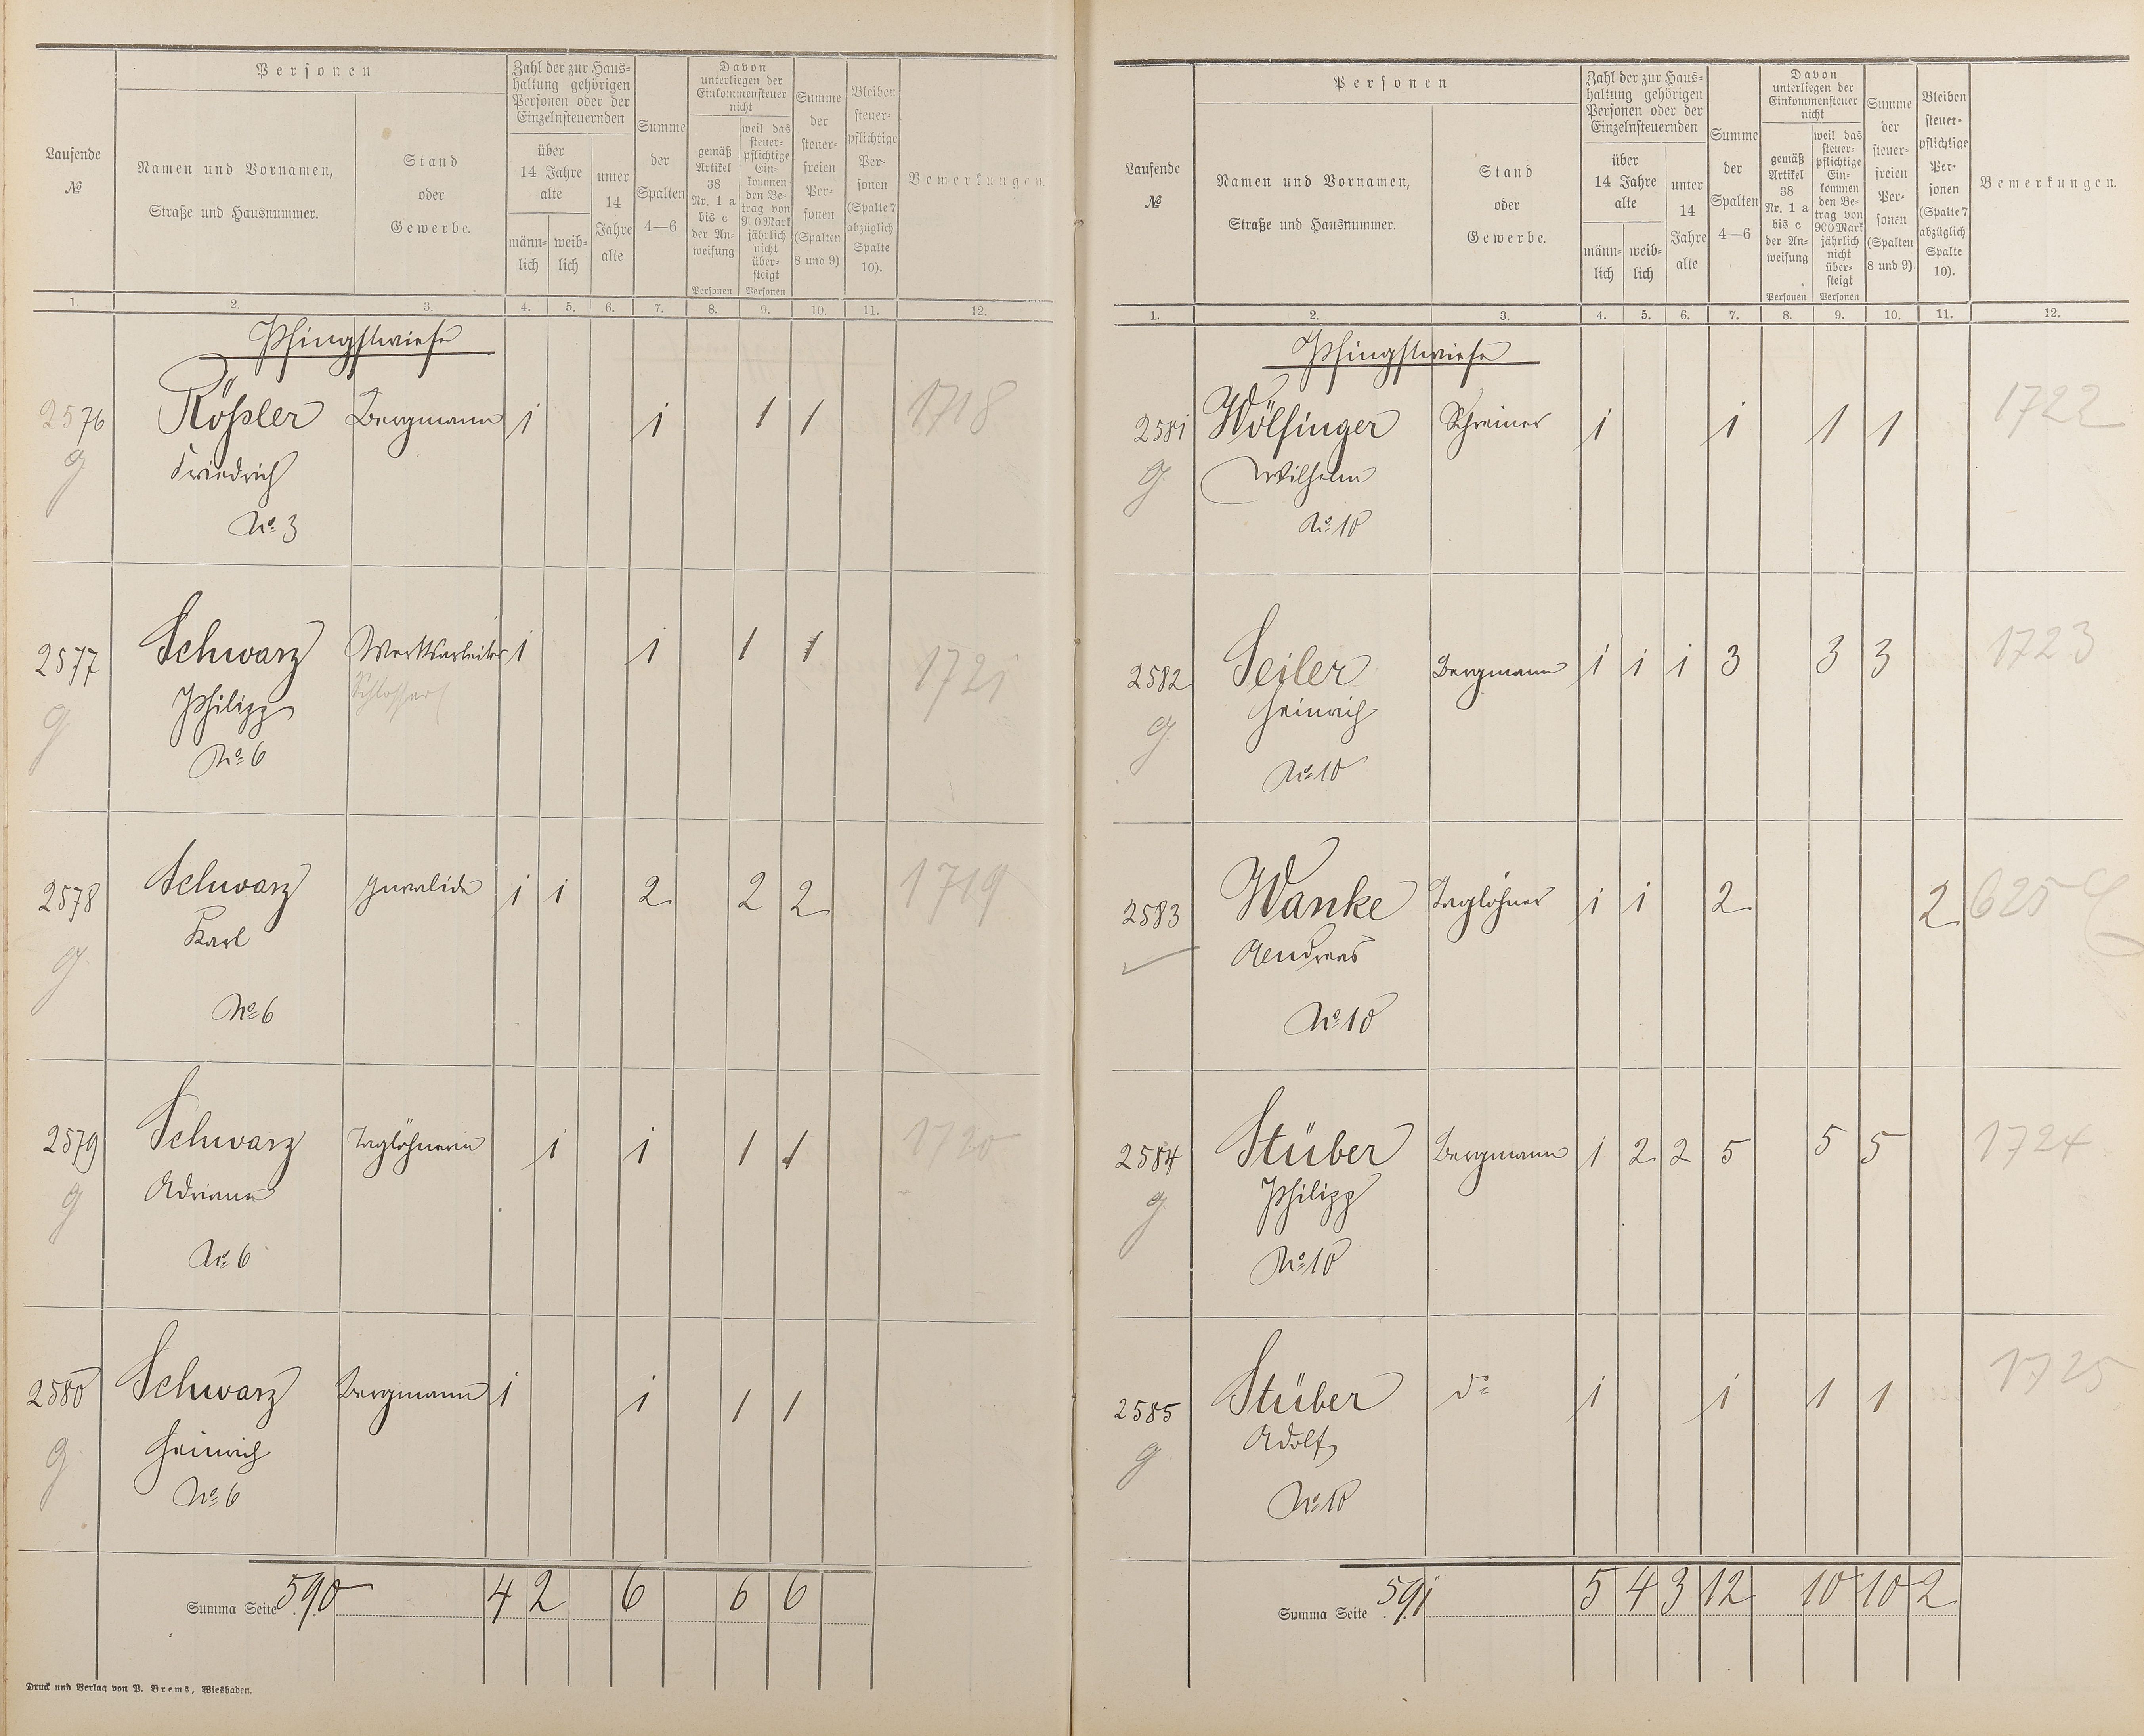 Laufende
№
Personen
Namen und Vornamen,
Straße und Hausnummer.
Stand
oder
Gewerbe.
Zahl der zur Haus-
haltung gehörigen
Personen oder der
Einzelnsteuernden
über
14 Jahre
alte
männ-
lich
weib-
lich
unter
14
Jahre
alte
Summe
der
Spalten
4—6
Davon
unterliegen der
Einkommensteuer
nicht
gemäß
Artikel
38
Nr. 1 a
bis c
der An-
weisung
Personen
weil das
steuer-
pflichtige
Ein-
kommen
den Be-
trag von
900 Mark
jährlich
nicht
über-
steigt
Personen
Summe
der
steuer-
freien
Per-
sonen
(Spalten
8 und 9)
Bleiben
steuer-
pflichtige
Per-
sonen
(Spalte 7
abzüglich
Spalte
10).
Bemerkungen.
1. 2. 3. 4. 5. 6. 7. 8. 9. 10. 11. 12.
Pfingstwiese
2576 Rößler Bergmann 1 1 1 1 1718
g Friedrich
No 3
2577 Schwarz Werksarbeiter 1 1 1 1 1721
g Philipp Schlosser
No 6
2578 Schwarz Invalide 1 1 2 2 2 1719
g Karl
No 6
2579 Schwarz Taglöhnerin 1 1 1 1 1720
g Adriana
No 6
2580 Schwarz Bergmann 1 1 1 1
g Heinrich
No 6
Summa Seite 590 4 2 6 6 6
Druck und Verlag von P. Brems, Wiesbaden.
Laufende
№
Personen
Namen und Vornamen,
Straße und Hausnummer.
Stand
oder
Gewerbe.
Zahl der zur Haus-
haltung gehörigen
Personen oder der
Einzelnsteuernden
über
14 Jahre
alte
männ-
lich
weib-
lich
unter
14
Jahre
alte
Summe
der
Spalten
4—6
Davon
unterliegen der
Einkommensteuer
nicht
gemäß
Artikel
38
Nr. 1 a
bis c
der An-
weisung
Personen
weil das
steuer-
pflichtige
Ein-
kommen
den Be-
trag von
900 Mark
jährlich
nicht
über-
steigt
Personen
Summe
der
steuer-
freien
Per-
sonen
(Spalten
8 und 9)
Bleiben
steuer-
pflichtige
Per-
sonen
(Spalte 7
abzüglich
Spalte
10).
Bemerkungen.
1. 2. 3. 4. 5. 6. 7. 8. 9. 10. 11. 12.
Pfingstwiese
2581 Wölfinger Schreiner 1 1 1 1 1722
g Wilhelm
No 10
2582 Seiler Bergmann 1 1 1 3 3 3 1723
g Heinrich
No 10
2583 Wanke Taglöhner 1 1 2 2 625
Andreas
No 10
2584 Stüber Bergmann 1 2 2 5 5 5 1724
g Philipp
No 10
2585 Stüber do 1 1 1 1 1725
g Adolf
No 10
Summa Seite 591 5 4 3 12 10 10 2